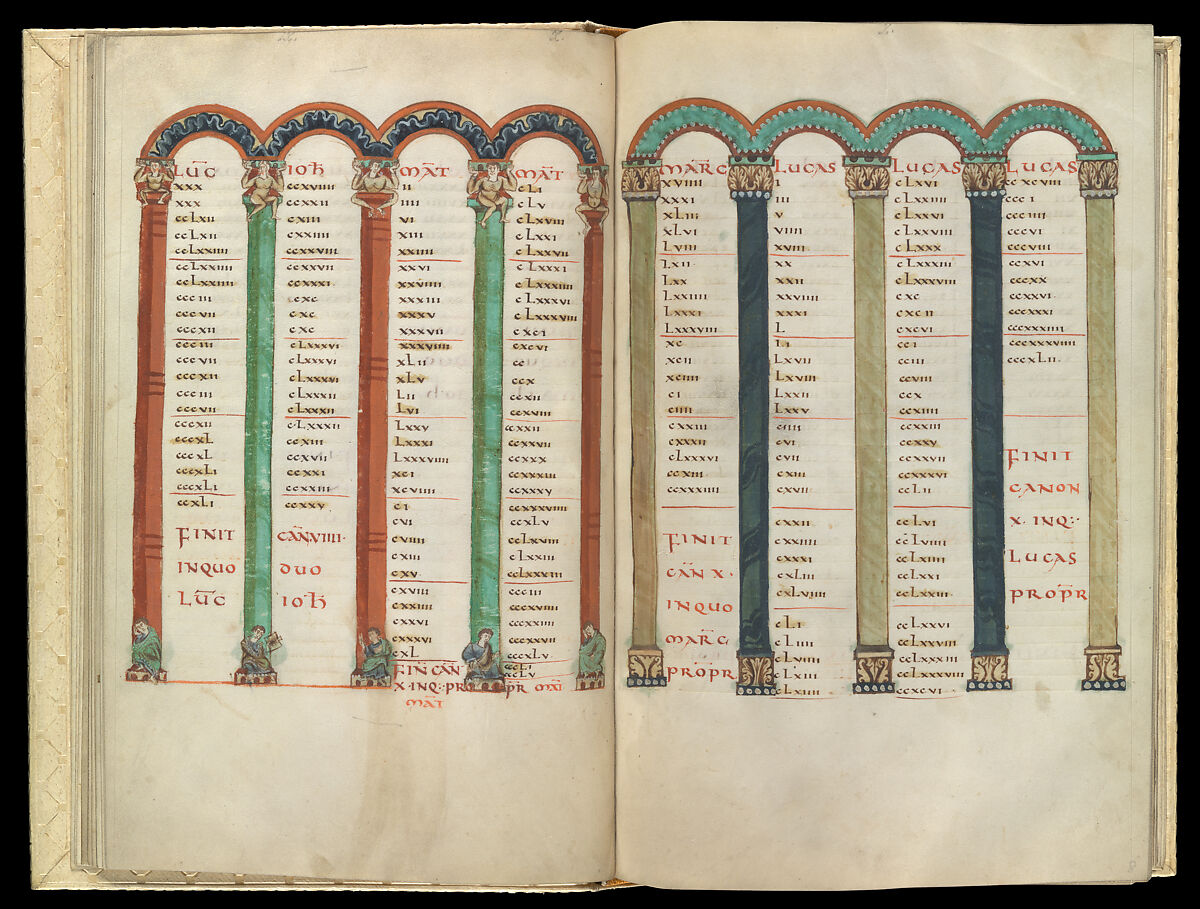 LUC
xxx
xxx
ccLxii
ccLxii
ccLxxiiii
ccLxxiiii
ccLxxiiii
ccciii
cccvii
cccxii
ccciii
cccvii
cccxii
ccciii
cccvii
cccxii
cccxL
cccxL
cccxLi
cccxLi
ccxLi
FINIT
INQUO
LUC
IOH
ccxviiii
ccxxii
cxiii
cxxiiii
ccxxviii
ccxxvii
ccxxxi
cxc
cxc
cxc
cLxxxvi
cLxxxvi
cLxxxvi
cLxxxii
cLxxxii
cLxxxii
ccxiii
ccxvii
ccxxi
ccxxiii
ccxxv
CAN VIIII
DUO
IOH
MAT
ii
iiii
vi
xiii
xxiiii
xxvi
xxviiii
xxxiii
xxxv
xxxvii
xxxviiii
xLii
xLv
Lii
Lvi
Lxxv
Lxxxi
Lxxxviiii
xci
xcviiii
ci
cvi
cviiii
cxiii
cxv
cxviii
cxxiiii
cxxvi
cxxxvi
cxL
MAT
cLi
cLv
cLxviii
cLxxi
cLxxvii
cLxxxi
cLxxxiiii
cLxxxvi
cLxxxviii
cxci
cxcvi
cc
ccx
ccxii
ccxviii
ccxxii
ccxxvii
ccxxx
ccxxxiii
ccxxxv
ccxxxviiii
ccxLv
ccLxviii
ccLxxiii
ccLxxxiii
ccciii
cccxviii
cccxxiiii
cccxxvii
cccxLv
FIN CAN
X · INQ · PRO PR MAT
MAT
MARC
xviiii
xxxi
xLiii
xLvi
Lviii
Lxii
Lxx
Lxxiiii
Lxxxi
Lxxxviii
xc
xcii
xciiii
ci
ciiii
cxxiii
cxxxii
cLxxxvi
ccxiii
ccxxxiiii
FINIT
CAN X ·
INQUO
MARC
PROPR
LUCAS
i
iii
v
viiii
xviii
xx
xxii
xxviiii
xxxi
L
Li
Lxvii
Lxviii
Lxxii
Lxxv
ciiii
cvi
cvii
cxiii
cxvii
cxxii
cxxiiii
cxxxi
cxLiii
cxLviiii
cLi
cLiiii
cLviiii
cLxiiii
LUCAS
cLxvi
cLxxiiii
cLxxvi
cLxxviii
cLxxx
cLxxxiii
cLxxxviii
cxc
cxcii
cxcvi
cci
cciii
ccviii
ccx
ccxiiii
ccxxiii
ccxxv
ccxxvii
ccxxxvi
ccLii
ccLvi
ccLviiii
ccLxiiii
ccLxxi
ccLxxiii
ccLxxvi
ccLxxxiii
ccLxxxviii
ccxcvi
LUCAS
ccxcviii
ccci
ccciiii
cccvi
cccviii
cccxvi
cccxx
cccxxvi
cccxxxi
cccxxxiiii
cccxxxviiii
cccxLii
FINIT
CANON
X · INQ ·
LUCAS
PROPR